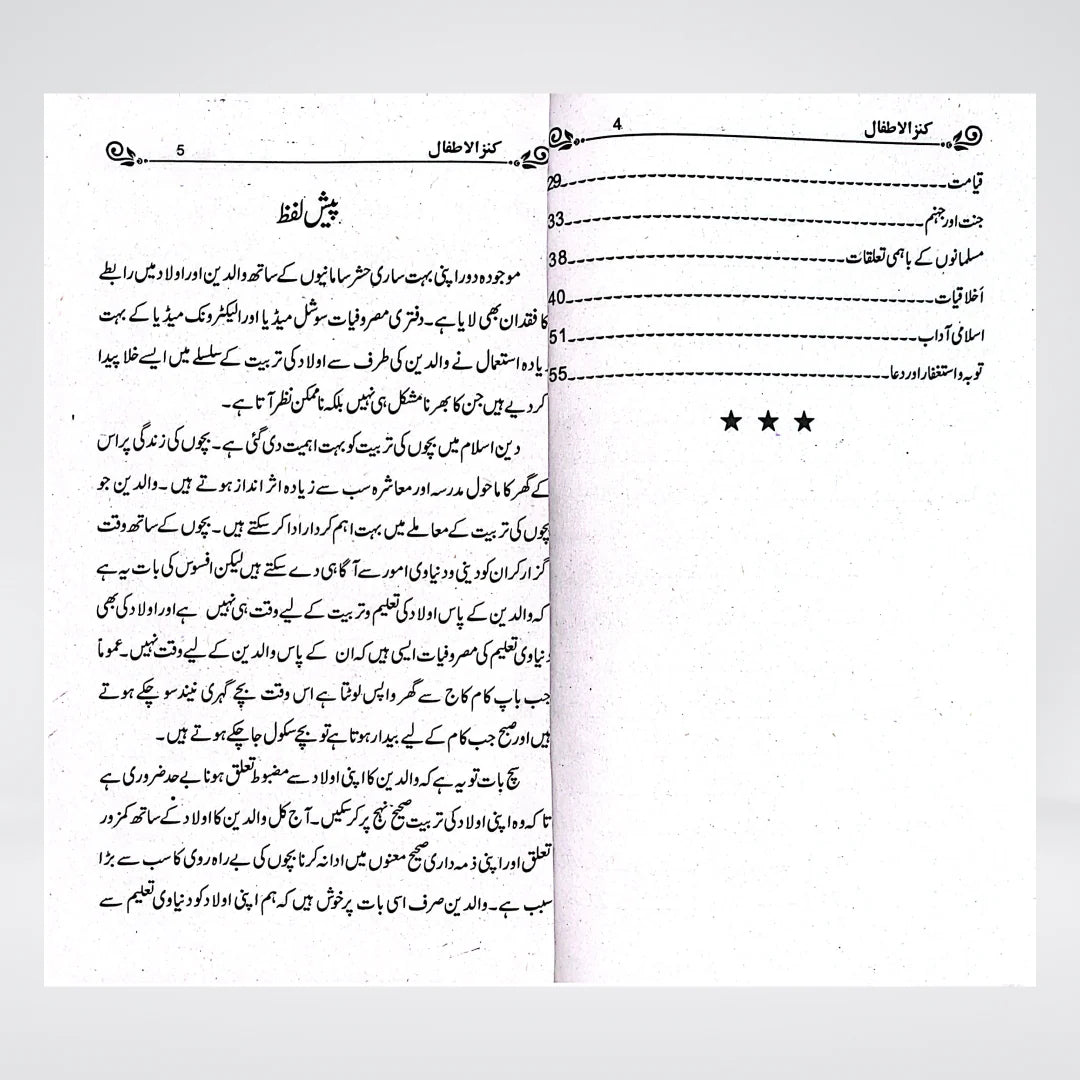 کنز الاطفال 4
قیامت 29
جنت اور جہنم 33
مسلمانوں کے باہمی تعلقات 38
اَخلاقیات 40
اسلامی آداب 51
توبہ واستغفار اور دعا 55
★ ★ ★
کنز الاطفال 5
پیش لفظ
موجودہ دور اپنی بہت ساری حشر سامانیوں کے ساتھ والدین اور اولاد میں رابطے
کا فقدان بھی لایا ہے۔ دفتری مصروفیات سوشل میڈیا اور الیکٹرونک میڈیا کے بہت
یادہ استعمال نے والدین کی طرف سے اولاد کی تربیت کے سلسلے میں ایسے خلا پیدا
کر دیے ہیں جن کا بھرنا مشکل ہی نہیں بلکہ ناممکن نظر آتا ہے۔
دین اسلام میں بچوں کی تربیت کو بہت اہمیت دی گئی ہے۔ بچوں کی زندگی پر اس
کے گھر کا ماحول مدرسہ اور معاشرہ سب سے زیادہ اثر انداز ہوتے ہیں۔ والدین جو
بچوں کی تربیت کے معاملے میں بہت اہم کردار ادا کر سکتے ہیں۔ بچوں کے ساتھ وقت
گزار کر ان کو دینی و دنیاوی امور سے آگاہی دے سکتے ہیں لیکن افسوس کی بات یہ ہے
کہ والدین کے پاس اولاد کی تعلیم و تربیت کے لیے وقت ہی نہیں ہے اور اولاد کی بھی
دنیاوی تعلیم کی مصروفیات ایسی ہیں کہ ان کے پاس والدین کے لیے وقت نہیں۔ عموماً
جب باپ کام کاج سے گھر واپس لوٹتا ہے اس وقت بچے گہری نیند سو چکے ہوتے
ہیں اور صبح جب کام کے لیے بیدار ہوتا ہے تو بچے سکول جا چکے ہوتے ہیں۔
سچ بات تو یہ ہے کہ والدین کا اپنی اولاد سے مضبوط تعلق ہونا بے حد ضروری ہے
تا کہ وہ اپنی اولاد کی تربیت صحیح نہج پر کر سکیں۔ آج کل والدین کا اولاد کے ساتھ کمزور
تعلق اور اپنی ذمہ داری صحیح معنوں میں ادا نہ کرنا بچوں کی بے راہ روی کا سب سے بڑا
سبب ہے۔ والدین صرف اسی بات پر خوش ہیں کہ ہم اپنی اولاد کو دنیاوی تعلیم سے